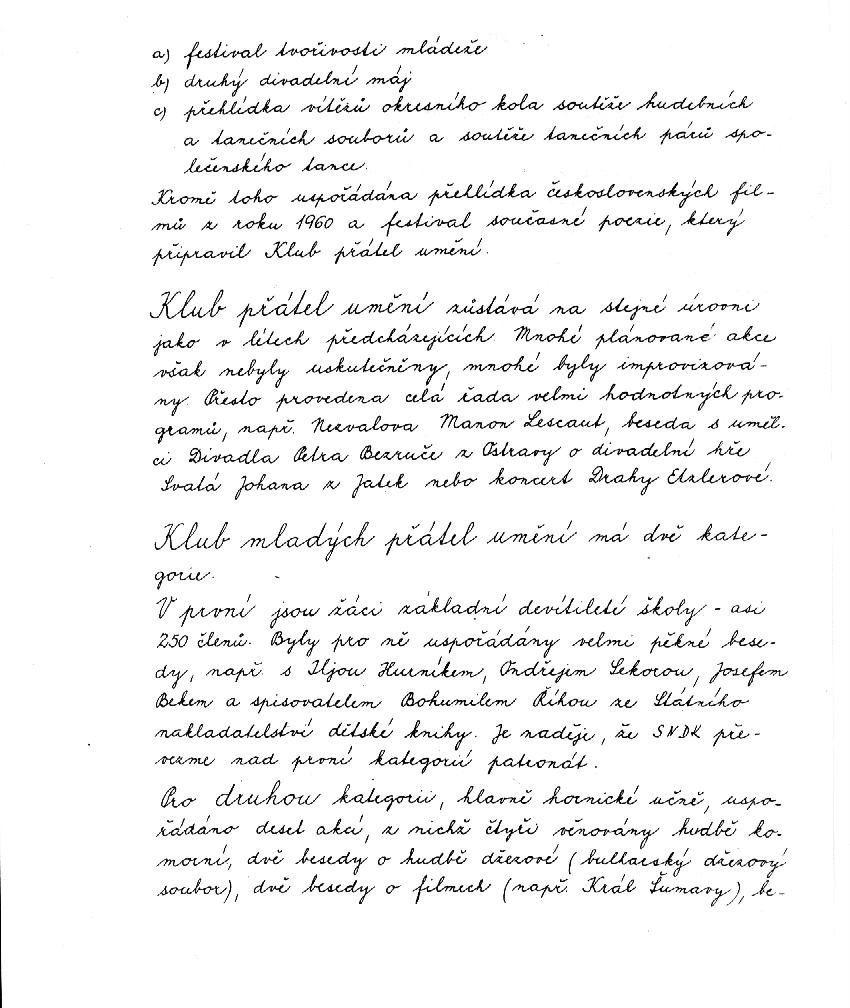 a) festival tvořivosti mládeže
b) druhý divadelní máj
c) přehlídka vítězů okresního kola soutěže hudebních
a tanečních souborů a soutěže tanečních párů spo-
lečenského tance.
Kromě toho uspořádána přehlídka československých fil-
mů z roku 1960 a festival současné poezie, který
připravil Klub přátel umění.
Klub přátel umění zůstává na stejné úrovni
jako v létech předcházejících. Mnohé plánované akce
však nebyly uskutečněny, mnohé byly improvizová-
ny. Přesto provedena celá řada velmi hodnotných pro-
gramů, např. Nezvalova Manon Lescaut, beseda s uměl-
ci Divadla Petra Bezruče z Ostravy o divadelní hře
Svatá Johana z Jatek nebo koncert Drahy Etzlerové.
Klub mladých přátel umění má dvě kate-
gorie.
V první jsou žáci základní devítileté školy - asi
250 členů. Byly pro ně uspořádány velmi pěkné bese-
dy, např. s Iljou Hurníkem, Ondřejem Sekorou, Josefem
Bekem a spisovatelem Bohumilem Říhou ze Státního
nakladatelství dětské knihy. Je naděje, že SNDK pře-
vezme nad první kategorií patronát.
Pro druhou kategorii, hlavně hornické učně, uspo-
řádáno deset akcí, z nichž čtyři věnovány hudbě ko-
morní, dvě besedy o hudbě džezové (bulharský džezový
soubor), dvě besedy o filmech (např. Král Šumavy), be-